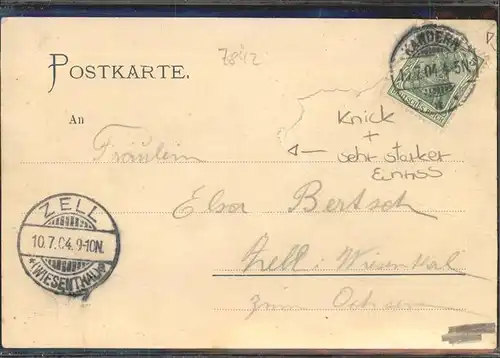 7842
KANDERN
10.7.04.4-5N.
POSTKARTE.
An
Knick
+
sehr starker
Einriss
Fräulein
Elsa Bertsch
Zell i. Wiesenthal
zum Ochsen
ZELL
10.7.04.9-10N.
(WIESENTHAL)